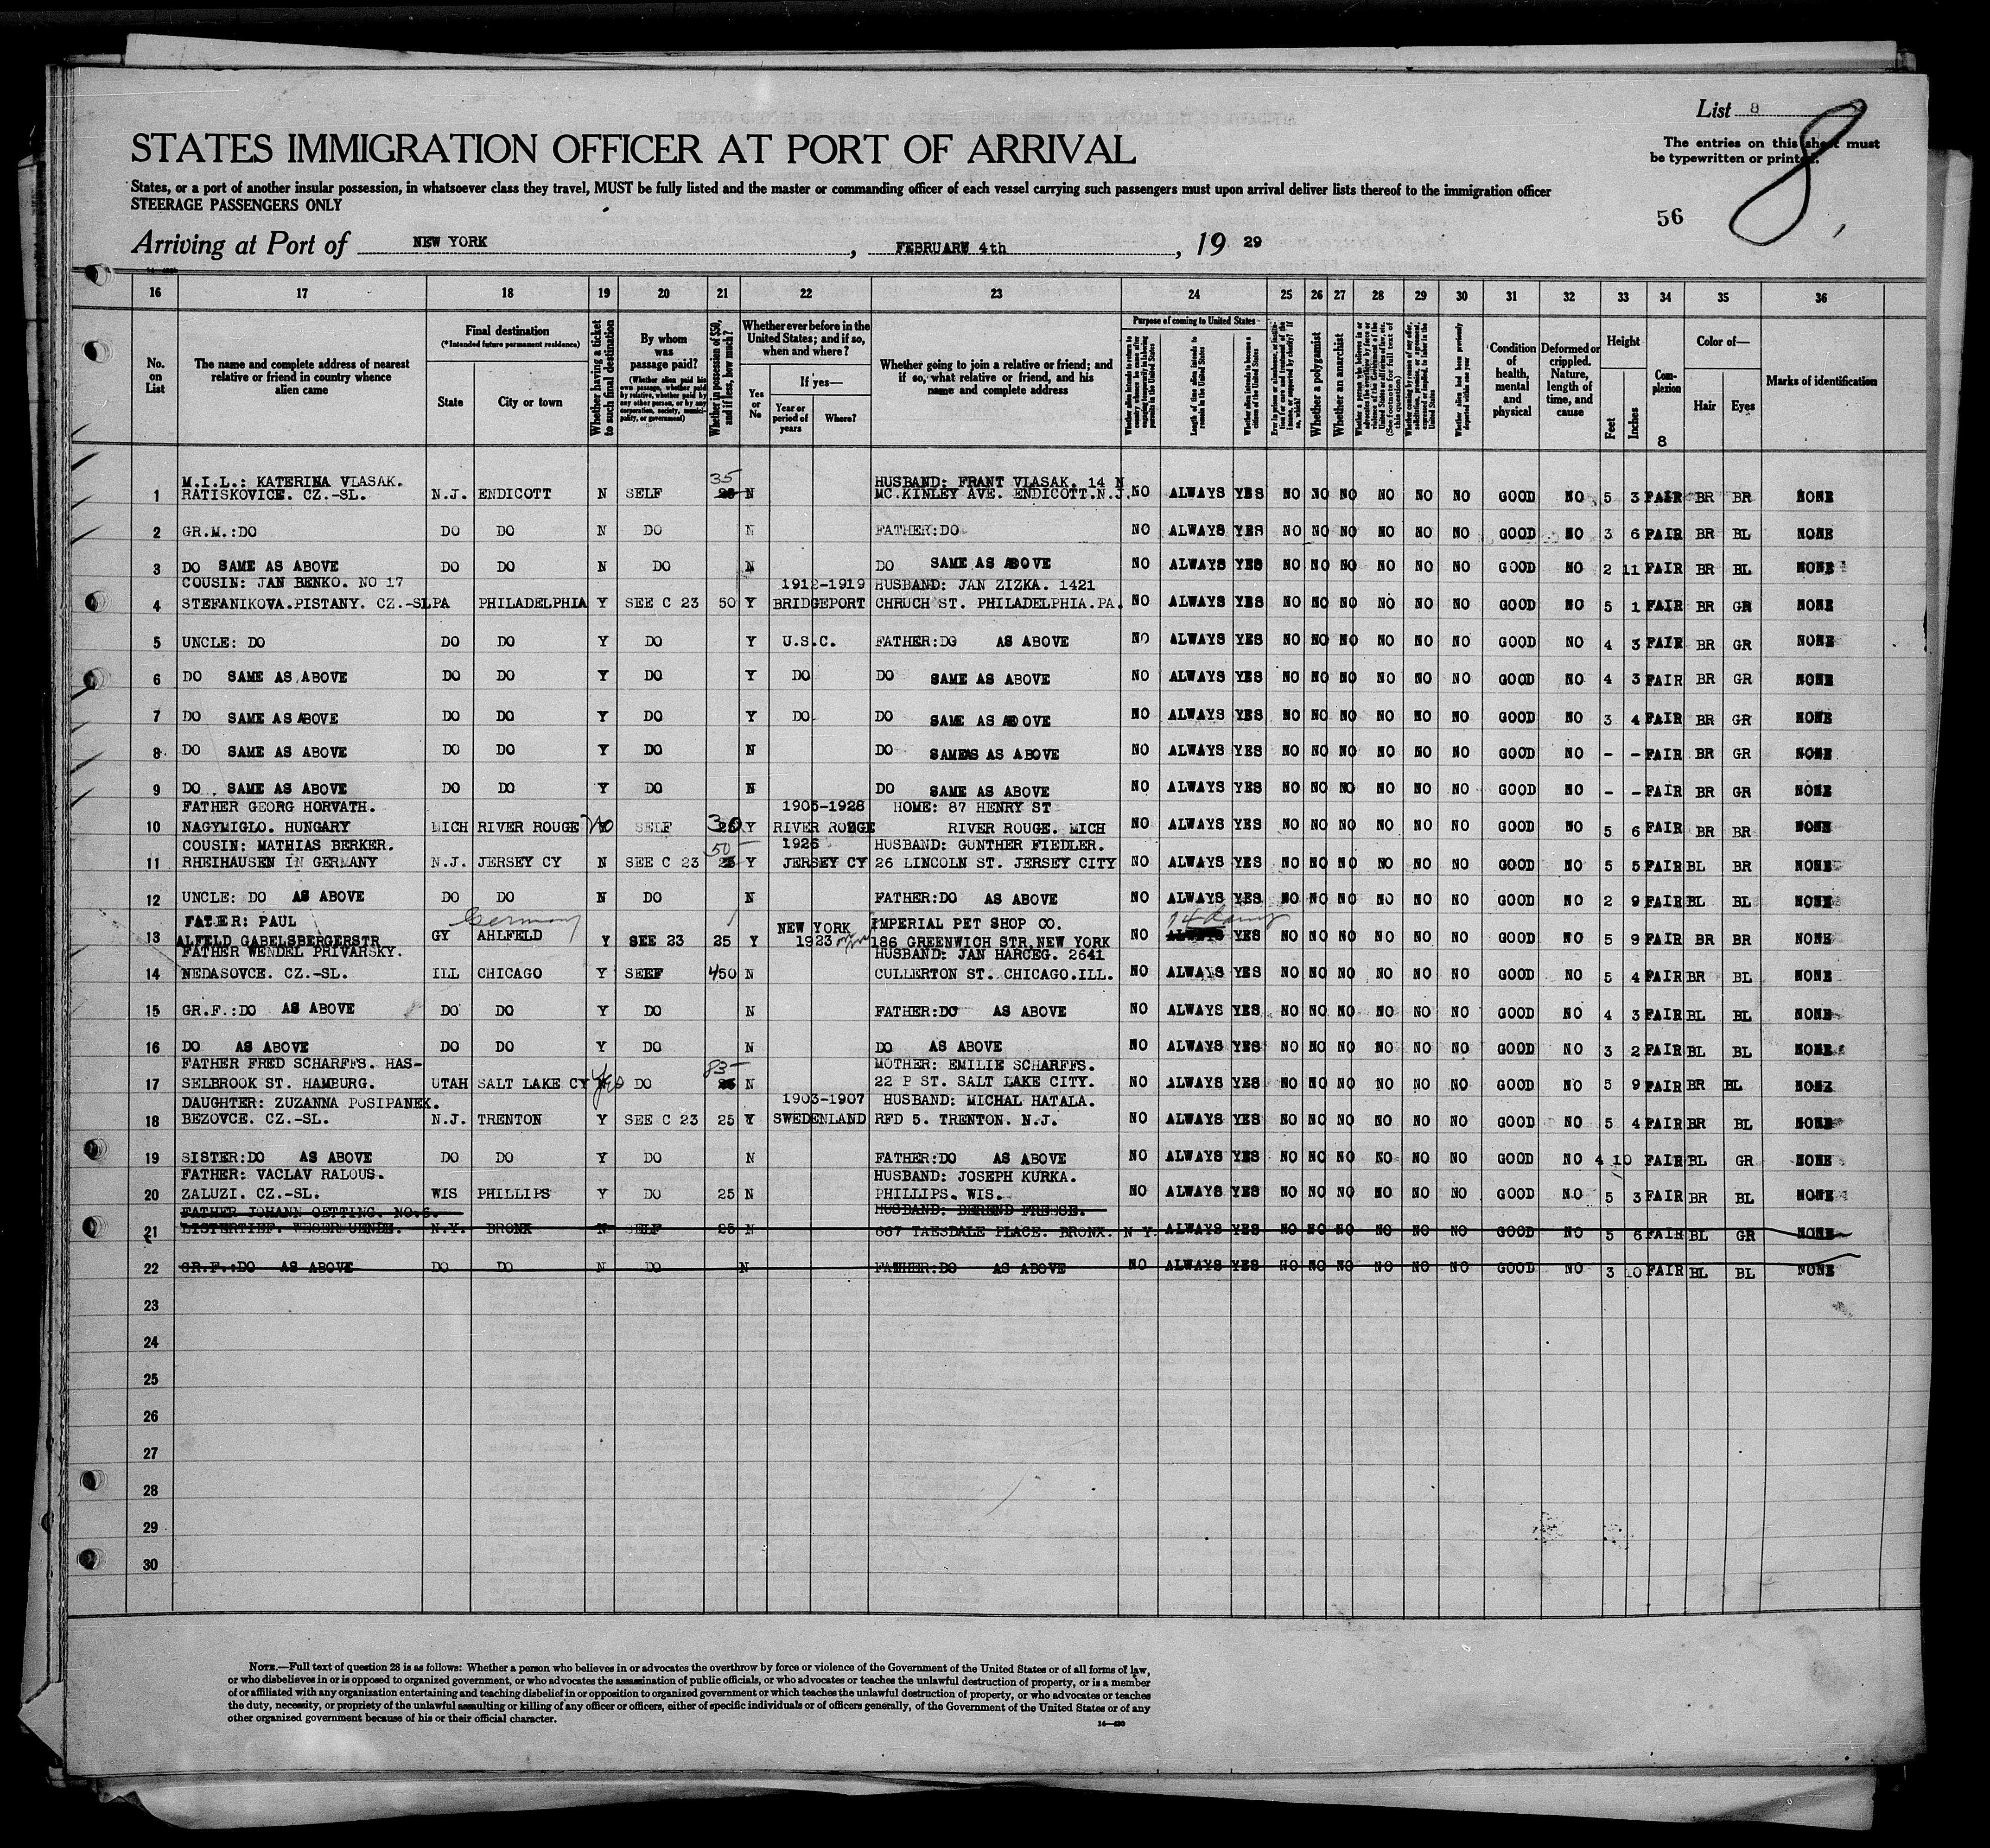 List 8
8
The entries on this sheet must
be typewritten or printed.
STATES IMMIGRATION OFFICER AT PORT OF ARRIVAL
States, or a port of another insular possession, in whatsoever class they travel, MUST be fully listed and the master or commanding officer of each vessel carrying such passengers must upon arrival deliver lists thereof to the immigration officer
STEERAGE PASSENGERS ONLY
56
Arriving at Port of NEW YORK, FEBRUARY 4th, 19 29
16 17 18 19 20 21 22 23 24 25 26 27 28 29 30 31 32 33 34 35 36
No. on List
The name and complete address of nearest relative or friend in country whence alien came
Final destination
(*Intended future permanent residence)
State
City or town
Whether having a ticket to such final destination
By whom was passage paid?
(Whether alien paid his own passage, whether paid by relative, whether paid by any other person, or by any corporation, society, municipality, or government)
Whether in possession of $50, and if less, how much?
Whether ever before in the United States; and if so, when and where?
Yes or No
If yes—
Year or period of years
Where?
Whether going to join a relative or friend; and if so, what relative or friend, and his name and complete address
Purpose of coming to United States
Length of time alien intends to remain in the United States
Whether alien intends to become a citizen of the United States
Whether a polygamist
Whether an anarchist
Condition of health, mental and physical
Deformed or crippled. Nature, length of time, and cause
Height
Feet
Inches
Complexion
8
Color of—
Hair
Eyes
Marks of identification
M.I.L.: KATERINA VLASAK. 35 HUSBAND: FRANT VLASAK. 14 N
1 RATISKOVICE. CZ.-SL. N.J. ENDICOTT N SELF 25 N MC.KINLEY AVE. ENDICOTT.N.J. NO ALWAYS YES NO NO NO NO NO NO GOOD NO 5 3 FAIR BR BR NONE
2 GR.M.:DO DO DO N DO N FATHER:DO NO ALWAYS YES NO NO NO NO NO NO GOOD NO 3 6 FAIR BR BL NONE
3 DO SAME AS ABOVE DO DO N DO N DO SAME AS ABOVE NO ALWAYS YES NO NO NO NO NO NO GOOD NO 2 11 FAIR BR BL NONE
COUSIN: JAN BENKO. NO 17 1912-1919 HUSBAND: JAN ZIZKA. 1421
4 STEFANIKOVA.PISTANY. CZ.-SL PA PHILADELPHIA Y SEE C 23 50 Y BRIDGEPORT CHRUCH ST. PHILADELPHIA.PA. NO ALWAYS YES NO NO NO NO NO NO GOOD NO 5 1 FAIR BR GR NONE
5 UNCLE: DO DO DO Y DO Y U.S.C. FATHER:DO AS ABOVE NO ALWAYS YES NO NO NO NO NO NO GOOD NO 4 3 FAIR BR GR NONE
6 DO SAME AS ABOVE DO DO Y DO Y DO DO SAME AS ABOVE NO ALWAYS YES NO NO NO NO NO NO GOOD NO 4 3 FAIR BR GR NONE
7 DO SAME AS ABOVE DO DO Y DO Y DO DO SAME AS ABOVE NO ALWAYS YES NO NO NO NO NO NO GOOD NO 3 4 FAIR BR GR NONE
8 DO SAME AS ABOVE DO DO Y DO N DO SAMEAS AS ABOVE NO ALWAYS YES NO NO NO NO NO NO GOOD NO - - FAIR BR GR NONE
9 DO SAME AS ABOVE DO DO Y DO N DO SAME AS ABOVE NO ALWAYS YES NO NO NO NO NO NO GOOD NO - - FAIR BR GR NONE
FATHER GEORG HORVATH. 1905-1928 HOME: 87 HENRY ST
10 NAGYMIGLO. HUNGARY MICH RIVER ROUGE No SELF 30 Y RIVER ROUGE RIVER ROUGE. MICH NO ALWAYS YES NO NO NO NO NO NO GOOD NO 5 6 FAIR BR BR NONE
COUSIN: MATHIAS BERKER. 50 1926 HUSBAND: GUNTHER FIEDLER.
11 RHEIHAUSEN IN GERMANY N.J. JERSEY CY N SEE C 23 25 Y JERSEY CY 26 LINCOLN ST. JERSEY CITY NO ALWAYS YES NO NO NO NO NO NO GOOD NO 5 5 FAIR BL BR NONE
12 UNCLE: DO AS ABOVE DO DO N DO N FATHER:DO AS ABOVE NO ALWAYS YES NO NO NO NO NO NO GOOD NO 2 9 FAIR BL BL NONE
FATHER: PAUL Germany NEW YORK IMPERIAL PET SHOP CO. 14 days
13 ALFELD GABELSBERGERSTR GY AHLFELD Y SEE 23 25 Y 1923 186 GREENWICH STR.NEW YORK NO ALWAYS YES NO NO NO NO NO NO GOOD NO 5 9 FAIR BR BR NONE
FATHER WENDEL PRIVARSKY. HUSBAND: JAN HARCEG. 2641
14 NEDASOVCE. CZ.-SL. ILL CHICAGO Y SELF 450 N CULLERTON ST. CHICAGO.ILL. NO ALWAYS YES NO NO NO NO NO NO GOOD NO 5 4 FAIR BR BL NONE
15 GR.F.:DO AS ABOVE DO DO Y DO N FATHER:DO AS ABOVE NO ALWAYS YES NO NO NO NO NO NO GOOD NO 4 3 FAIR BL BL NONE
16 DO AS ABOVE DO DO Y DO N DO AS ABOVE NO ALWAYS YES NO NO NO NO NO NO GOOD NO 3 2 FAIR BL BL NONE
FATHER FRED SCHARFFS. HAS- 85 MOTHER: EMILIE SCHARFFS.
17 SELBROOK ST. HAMBURG. UTAH SALT LAKE CY Yes DO 25 N 22 P ST. SALT LAKE CITY. NO ALWAYS YES NO NO NO NO NO NO GOOD NO 5 9 FAIR BR BL NONE
DAUGHTER: ZUZANNA POSIPANEK. 1903-1907 HUSBAND: MICHAL HATALA.
18 BEZOVCE. CZ.-SL. N.J. TRENTON Y SEE C 23 25 Y SWEDENLAND RFD 5. TRENTON. N.J. NO ALWAYS YES NO NO NO NO NO NO GOOD NO 5 4 FAIR BR BL NONE
19 SISTER:DO AS ABOVE DO DO Y DO N FATHER:DO AS ABOVE NO ALWAYS YES NO NO NO NO NO NO GOOD NO 4 10 FAIR BL GR NONE
FATHER: VACLAV RALOUS. HUSBAND: JOSEPH KURKA.
20 ZALUZI. CZ.-SL. WIS PHILLIPS Y DO 25 N PHILLIPS. WIS. NO ALWAYS YES NO NO NO NO NO NO GOOD NO 5 3 FAIR BR BL NONE
FATHER JOHANN OETTING. NO.6. HUSBAND: BEREND FREESE.
21 LISTERTIEF. WESERMUENDE. N.Y. BRONX N SELF 25 N 667 TAESDALE PLACE. BRONX. N Y. ALWAYS YES NO NO NO NO NO NO GOOD NO 5 6 FAIR BL GR NONE
22 GR.F.:DO AS ABOVE DO DO N DO N FATHER:DO AS ABOVE NO ALWAYS YES NO NO NO NO NO NO GOOD NO 3 10 FAIR BL BL NONE
23
24
25
26
27
28
29
30
NOTE.—Full text of question 28 is as follows: Whether a person who believes in or advocates the overthrow by force or violence of the Government of the United States or of all forms of law,
or who disbelieves in or is opposed to organized government, or who advocates the assassination of public officials, or who advocates or teaches the unlawful destruction of property, or is a member
of or affiliated with any organization entertaining and teaching disbelief in or opposition to organized government or which teaches the unlawful destruction of property, or who advocates or teaches
the duty, necessity, or propriety of the unlawful assaulting or killing of any officer or officers, either of specific individuals or of officers generally, of the Government of the United States or of any
other organized government because of his or their official character.
14—430